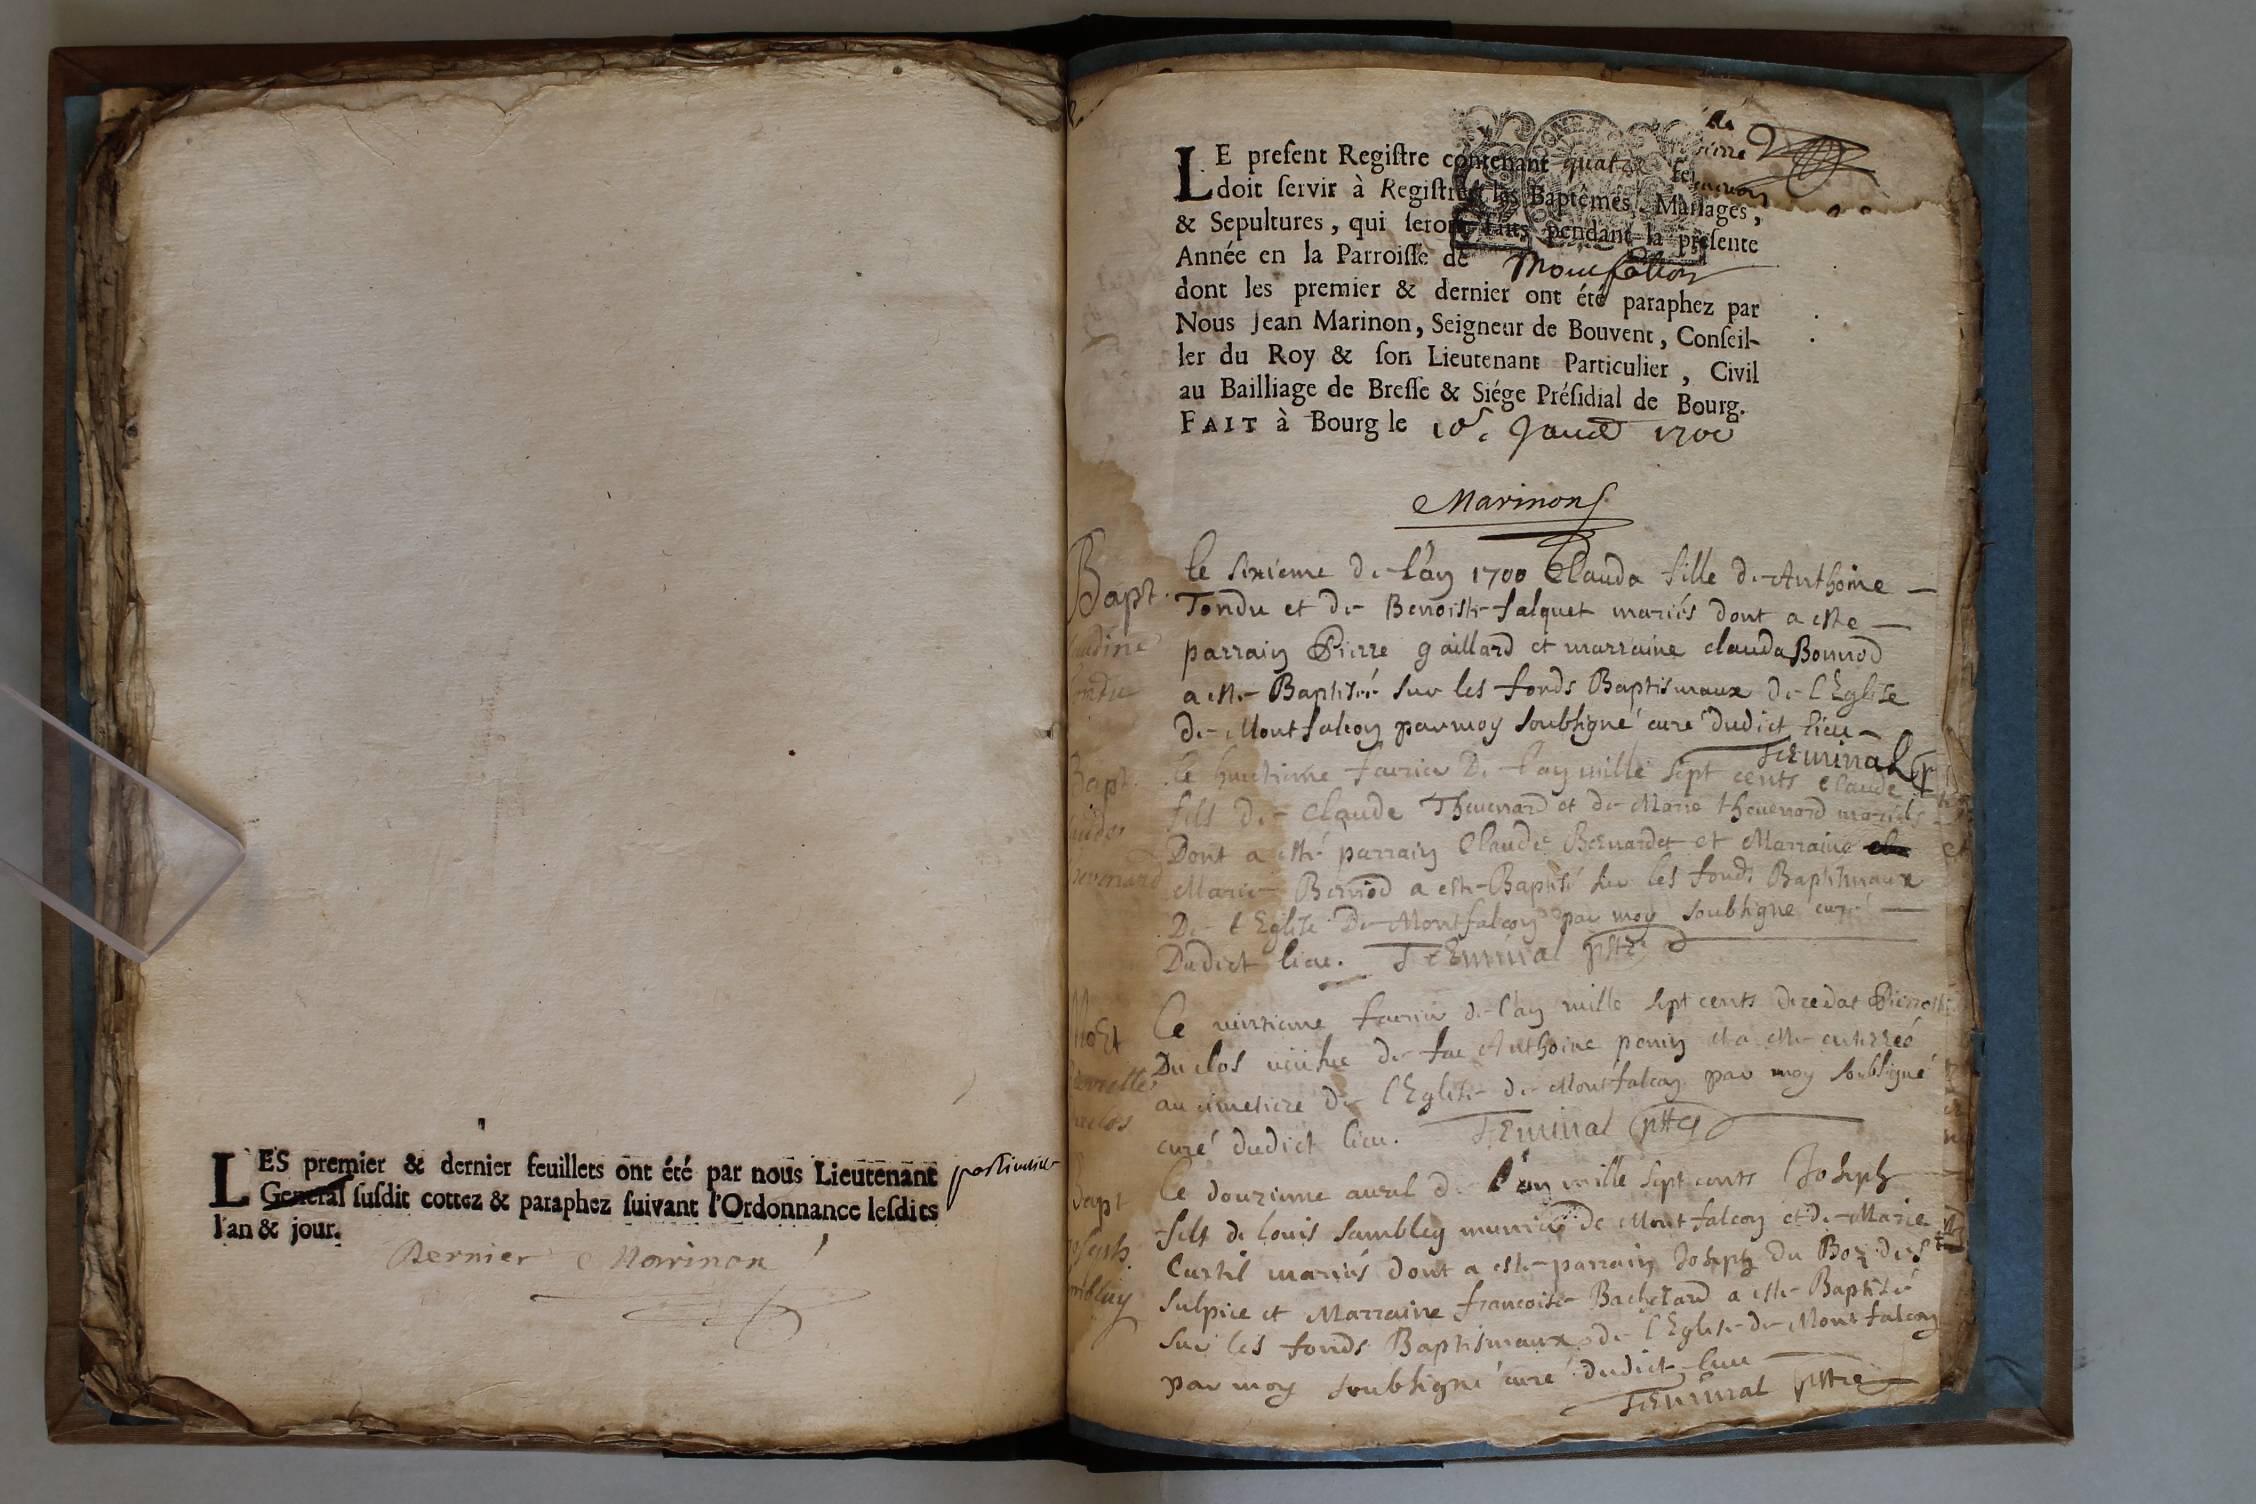 LES premier & dernier feuillets ont été par nous Lieutenant particulier
General susdit cottez & paraphez suivant l'Ordonnance lesdits
l'an & jour.
Dernier Marinon
LE present Registre contenant quatre
doit servir à Registrer les Baptêmes, Mariages,
& Sepultures, qui seront faits pendant la presente
Année en la Parroisse de Montfalcon
dont les premier & dernier ont été paraphez par
Nous Jean Marinon, Seigneur de Bouvent, Conseil-
ler du Roy & son Lieutenant Particulier, Civil
au Bailliage de Bresse & Siége Présidial de Bourg.
FAIT à Bourg le 10e Janvier 1700
Marinon
Bapt.
le sixieme de l'an 1700 Clauda fille de Anthoine
Tondu et de Benoiste falquet mariés dont a esté
parrain Pierre gaillard et marraine clauda Bonnod
a esté Baptisée sur les fonds Baptismaux de l'Eglise
de Montfalcon par moy soubsigné curé dudict lieu
Teminal
Bapt.
le huictieme febvrier De l'an mille sept cents Claude
fils de Claude Thevenard et de Marie thevenard mariés
Dont a esté parrain Claude Bernardet et Marraine
Marie Bernod a esté Baptisé sur les fonds Baptismaux
De l'Eglise De Montfalcon par moy soubsigné curé
Dudict lieu. Teminal pstre
le vintieme febvrier de l'an mille sept cents decedat Pierrette
Duclos veufve de feu Anthoine penin et a esté enterrée
au cimetiere de l'Eglise de Montfalcon par moy soubsigné
curé dudict lieu. Teminal pstre
Bapt
Joseph
Le douzieme avril de l'an mille sept cents Joseph
fils de Louis Sambley munier de Montfalcon et de Marie
Curtil mariés dont a esté parrain Joseph Du Boz de St
Sulpice et Marraine francoise Bachelard a esté Baptisé
sur les fonds Baptismaux de l'Eglise de Montfalcon
par moy soubsigné curé dudict lieu
Teminal pstre